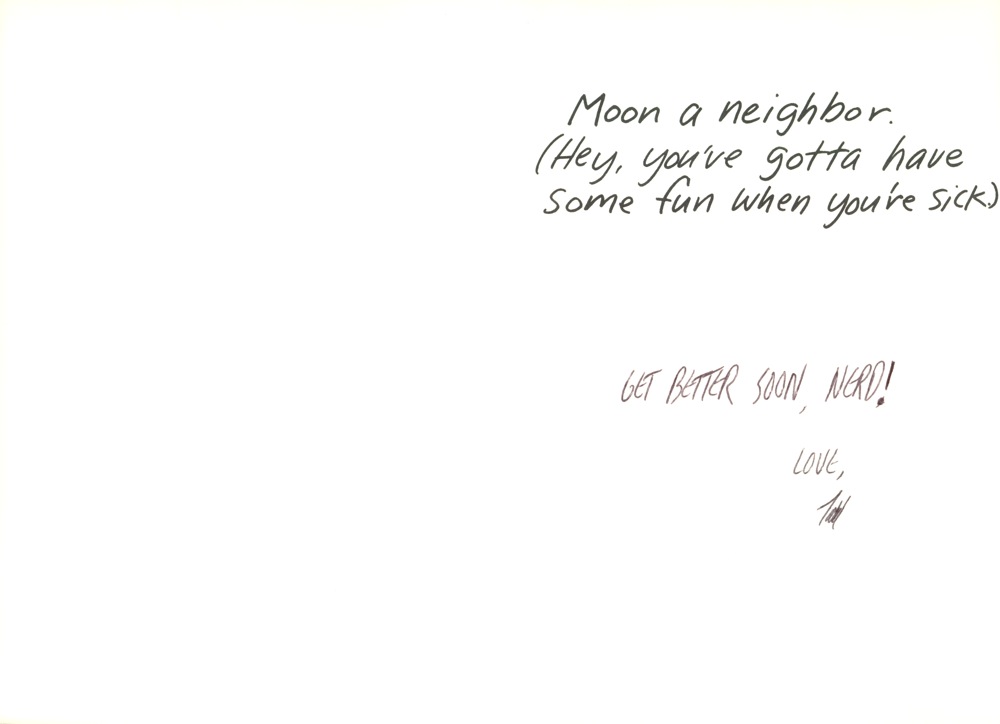 Moon a neighbor.
(Hey, you've gotta have
some fun when you're sick.)
GET BETTER SOON, NERD!
LOVE,